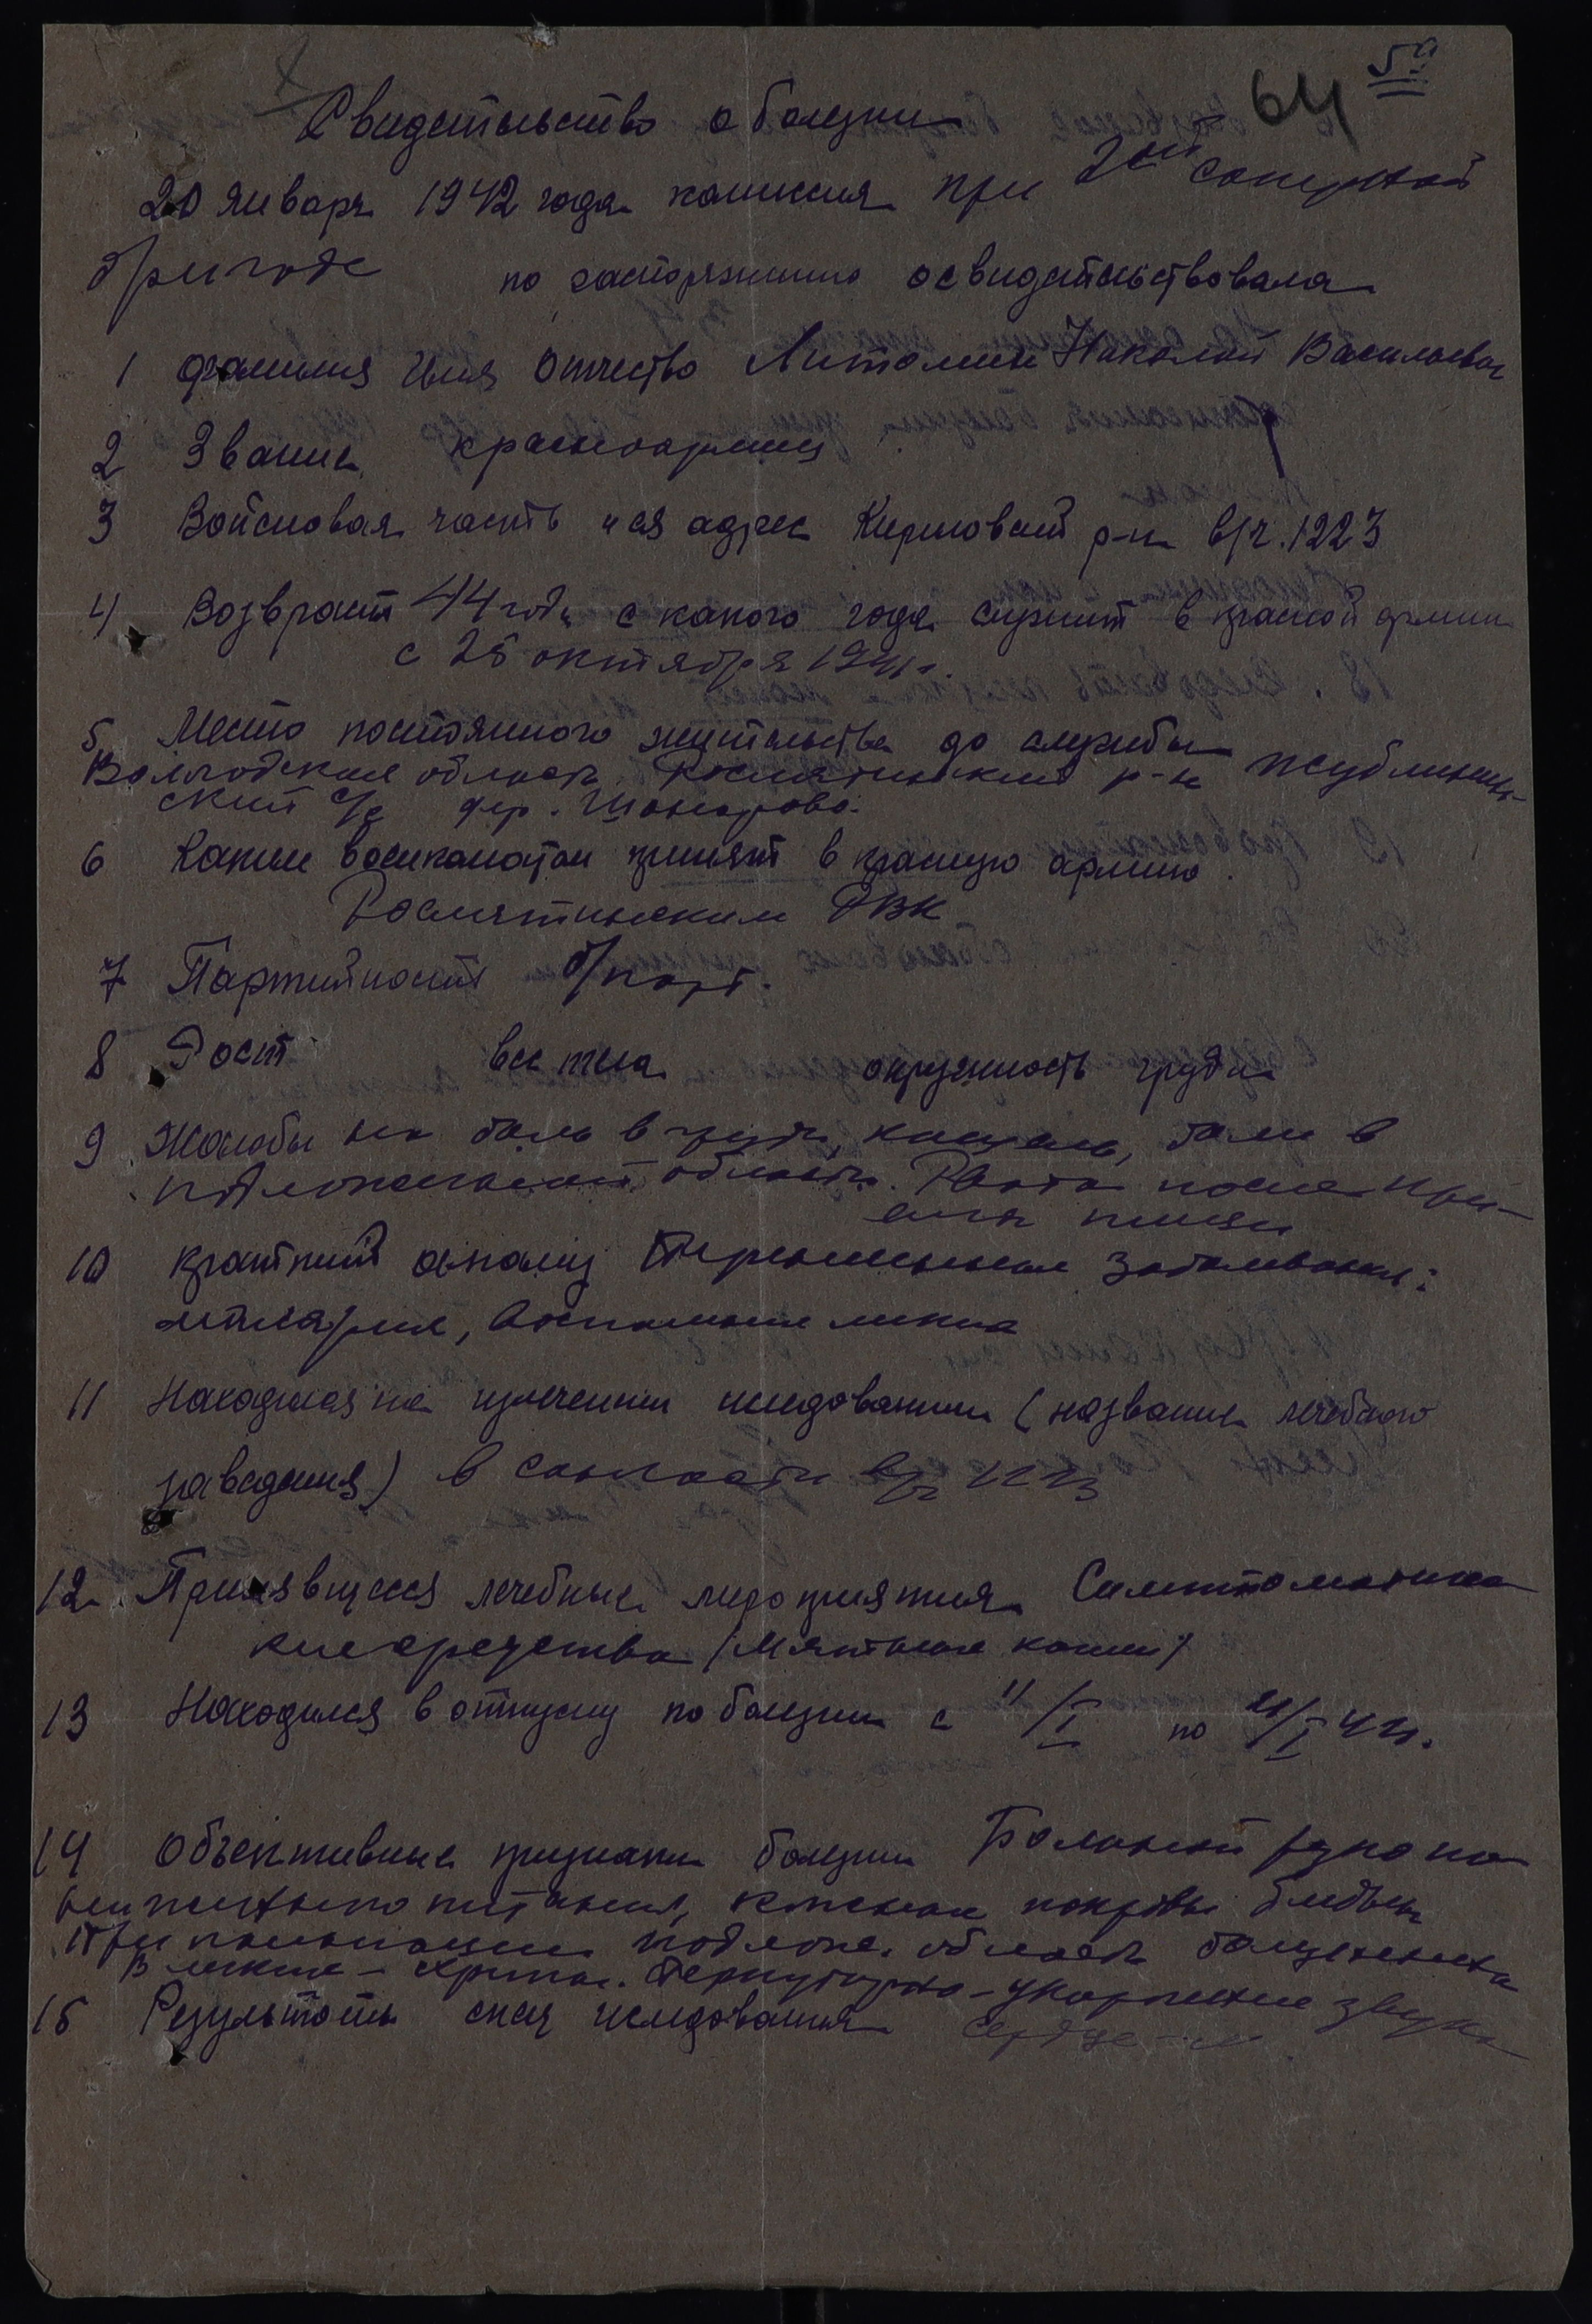 64 5а
Свидетельство о болезни
20 января 1942 года комиссия при 2ой саперной
бригаде по распоряжению освидетельствовала
1 фамилия Имя Отчество Литомин Николай Васильевич
2 Звание красноармеец
3 Войсковая часть и ея адрес Кировский р-н в/ч. 1223
4 Возраст 44 года с какого года служит в красной армии
с 25 октября 1941 г.
5 Место постоянного жительства до службы
Вологодская область Рослятинский р-н
ский с/с дер.
6 Каким военкоматом принят в красную армию.
Рослятинским РВК
7 Партийность б/парт.
8 Рост вес тела окружность груди
9 Жалобы на боль в груди, кашель, боли в
подложечной области. Рвота после при-
ема пищи
10 Краткий анамнез Перенесенные заболевания:
малярия, воспаление легких
11 Находился на излечении иследовании (название лечебного
заведения) в санчасти в/ч 1223
12 Применявшиеся лечебные мероприятия Симптоматиче
кие средства (Мятные капли)
13 Находился в отпуску по болезни с 11/I по 21/I 42.
14 Объективные признаки болезни Больной резко по
ниженного питания, кожные покровы бледны
При пальпации подлож. область болезненна
В легких – хрипы. Перкуторно – укорочение звука
15 Результаты спец иследования Сердце – N